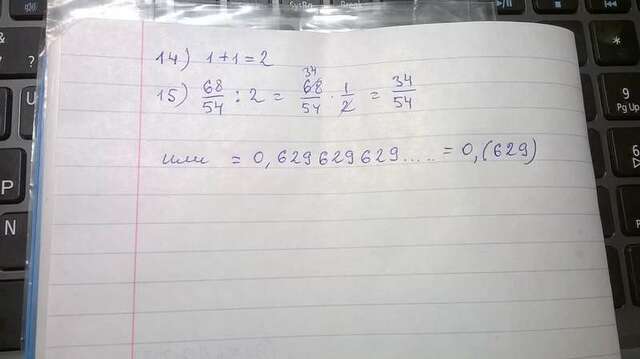 14) 1+1=2
15) 68/54 : 2 = 68/54 · 1/2 = 34/54
34
или = 0,629629629..... = 0,(629)
SysRq
Break
&
7
?
P
N
*
9
Pg Up
6